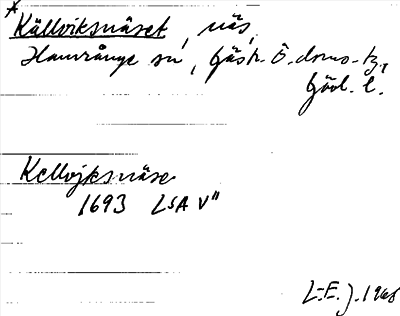 * Källviksnäset, näs,
Hamrånge sn, Gästr. Ö. doms-tg,
Gävl. l.
Kellvjksnäse
1693 LSA V"
L-E. J. 1968